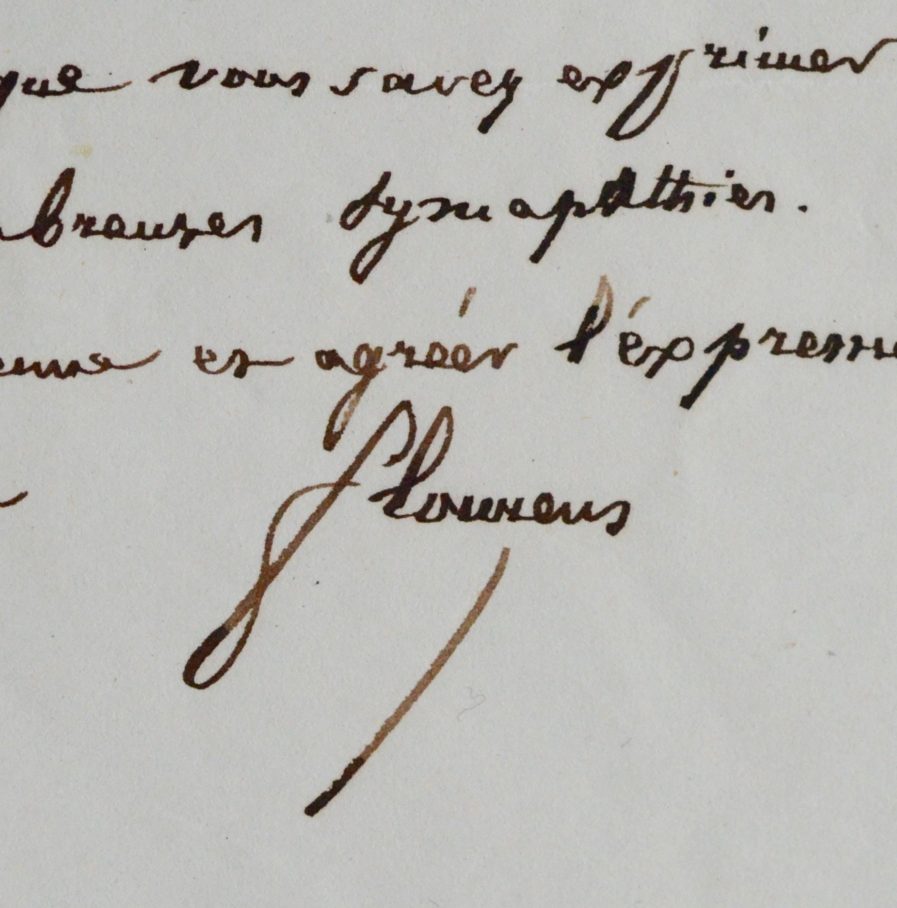 que vous savez exprimer
breuses sympathies.
et agréer l'expres
Flourens